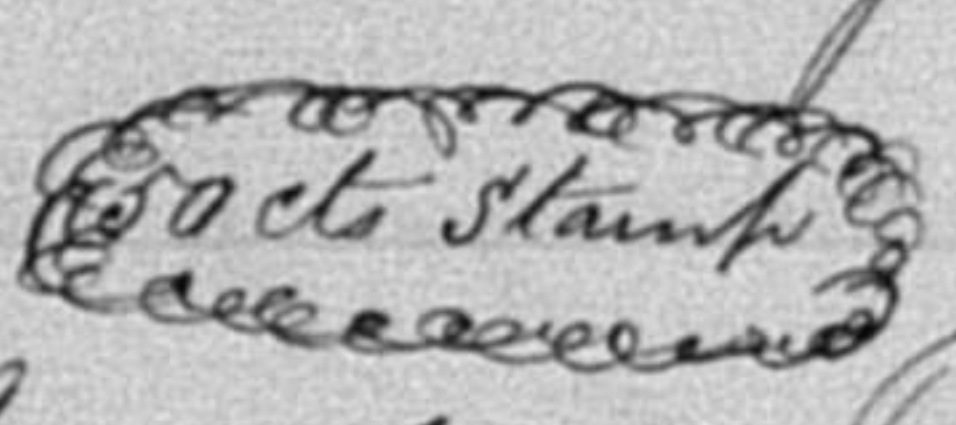 50 cts Stamp